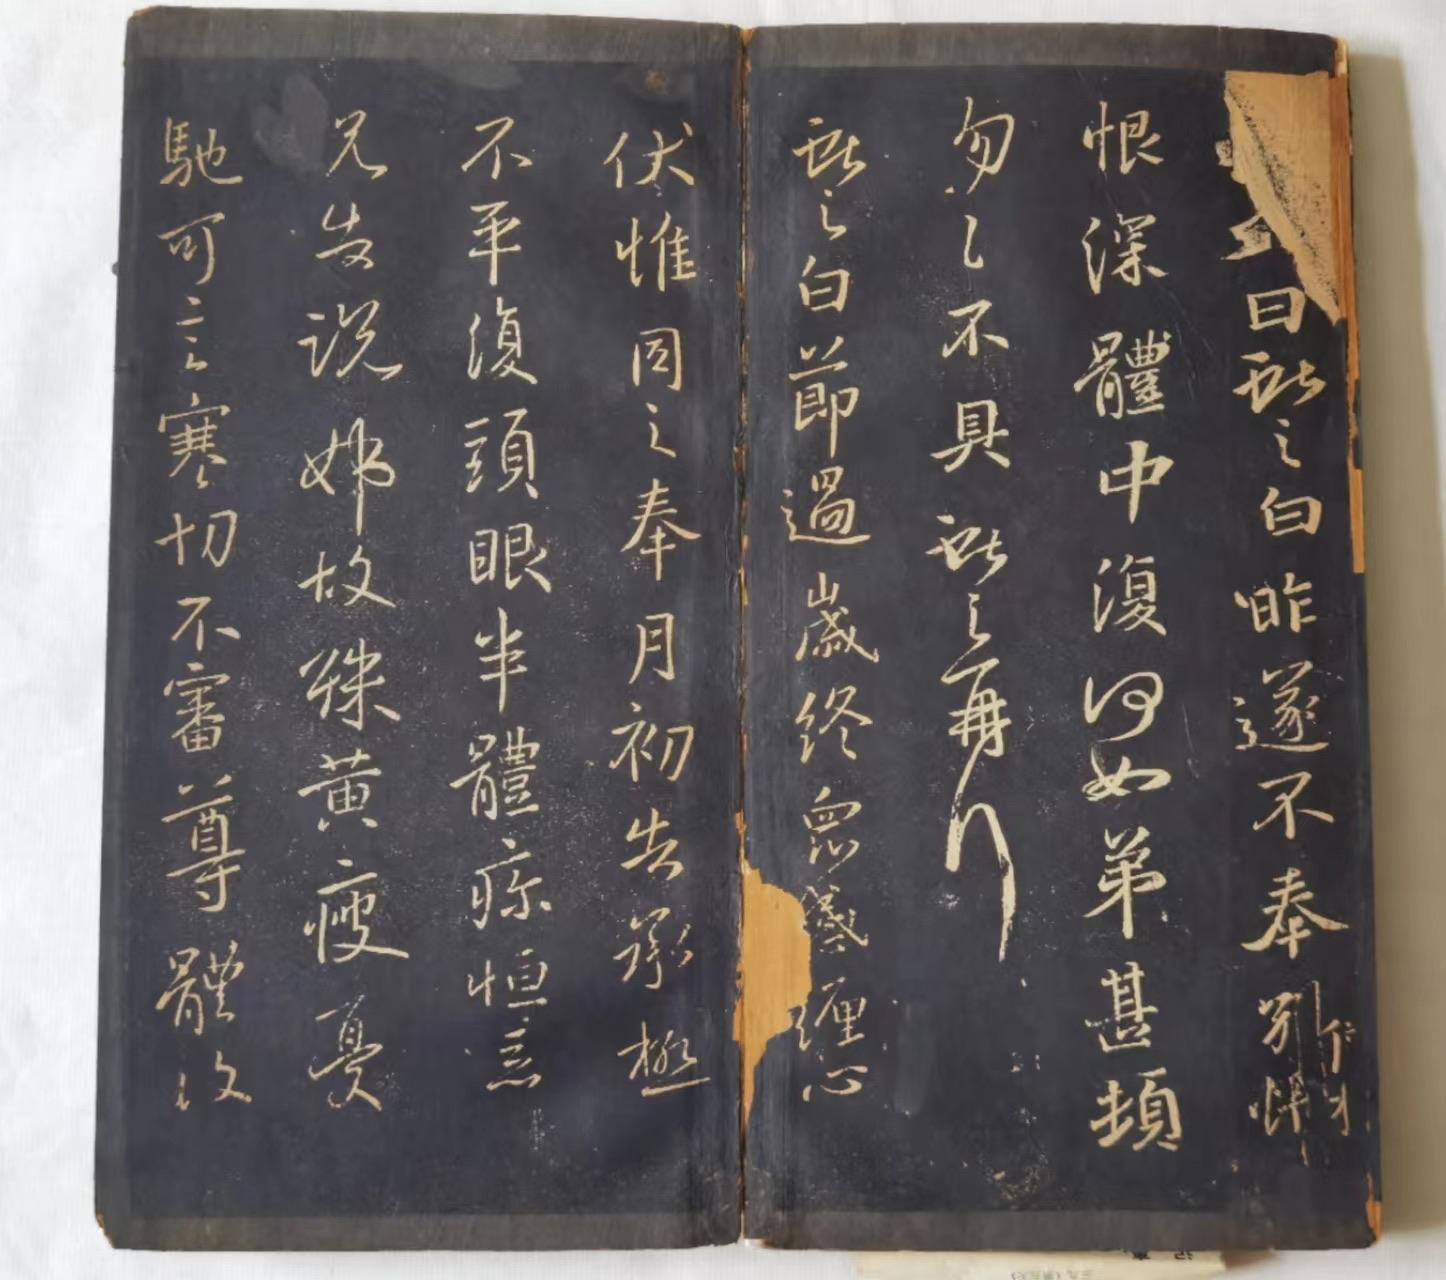 日獻之白昨遂不奉別悵
恨深體中復何如弟甚頓
匆匆不具獻之再拜
獻之白節過歲終眾感纏心
伏惟同之奉月初告承極
不平復頭眼半體疼恒惡
兄告說姊故殊黃瘦憂
馳可言寒切不審尊體復